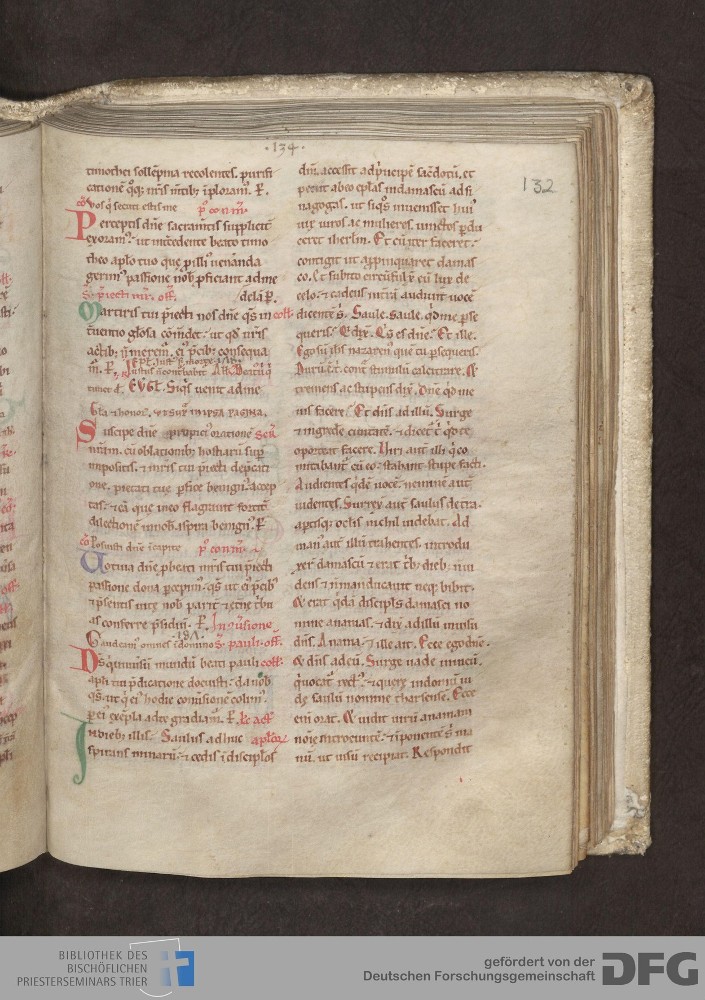 ·134·
132
timothei sollẽpnia recolentes. purifi
catione q̊q; nr̃is mẽtib; ĩploram᷒. P̃.
cõ Vos q̃ secuti estis me p̃ com̃.
Perceptis dñe sacram̃tis supplicit̃
exoram᷒. ut int̃cedente beato timo
theo ap̃lo tuo que p̃issu᷒ ueñanda
gerim᷒ passione nob̃ p̃ficiant ad me
S. p̃iecti mr̃. off̃. delã P̃.
Martiris tui p̃iecti nos dñe q̃s in coll̃.
t̃uentio gl̃osa com̃det. ut qd̃ nr̃is
actib; ñ merem᷒. ei᷒ p̃cib; consequa
m̃. P̃.
timet d̃. EVGL̃. Siq̃s uenit ad me
Gl̃a & honor̃.
Suscipe dñe propici᷒ orationẽ
nr̃am. cũ oblationib; hostiarũ sup̃
impositis. & mr̃is tui p̃iecti dep̃cati
one. pietati tue p̃fice benigni᷒ accep
tas. & eã que in eo flagrauit fortẽ
dilectionẽ in nob̃. aspira benign᷒. P̃
cõ Posuisti dñe ĩ capite p̃ com̃.
Votiua dñe p̃ beati mr̃is tui p̃iecti
passione dona p̃cepim᷒. q̃s ut ei᷒ p̃cib᷒
& p̃sentis uite nob̃ parit̃ & et̃ne t̃bu
as conferre p̃sidiũ. P̃. In ꝯũsione
Gaudeam᷒ omnes ĩ domino S. pauli. off̃.
Ds̃ qui uniũsũ mundũ beati pauli coll̃.
apl̃i tui p̃dicatione docuisti. da nob̃
q̃s. ut q̃ ei᷒ hodie conũsionẽ colim᷒.
p̃ ei᷒ exẽpla ad te gradiam̃. P̃. Lc̃ act̃
In dieb; illis. Saulus adhuc aplõr̃
spirans minarũ. & cedis ĩ discipl̃os
dm̃. accessit ad p̃ncipẽ sac̃dotũ. et
petiit ab eo epl̃as in damascũ ad si
nagogas. ut siq̃s inuenisset hui᷒
uiẽ uiros ac mulieres. uinctos p̃du
ceret iherl̃m. Et cũ iter faceret.
contigit ut appinquaret damas
co. Et subito circũfulsit̃ eũ lux de
celo. & cadens in t̃ram audiuit uocẽ
dicentẽ s̃. Saule. saule. q̃d me p̃se
queris. & dix̃. Q̃s es dñe. Et ille.
Ego sũ ih̃s nazaren᷒ que tu p̃sequeris.
Durũ. ẽ. t̃. cont̃ stimulũ calcitrare. &
tremens ac stupens dix̃. Dñe q̃d me
uis facere. Et dñs ad illũ. Surge
& ingrede ciuitatẽ. & dicet᷒ t̃ q̃d te
oporteat facere. Uiri aut̃ illi q̃ co
mitabant̃ cũ eo. stabant stupefacti.
Audientes q̃dẽ uocẽ. neminẽ aut̃
uidentes. Surrex̃ aut̃ saulus de t̃ra.
aptisq; oclis nichil uidebat. Ad
man᷒ aut̃ illũ trahentes. introdu
xer̃ damascũ & erat t̃b; dieb; ñ ui
dens & ñ manducauit neq; bibit.
& erat q̃dã discipl̃s damasci no
mine ananias. & dix̃ ad illũ in uisu
dñs. Anania. & ille ait. Ecce ego dñe.
& dñs ad eũ. Surge uade in uicũ.
q̃ uocat̃ rect᷒. & quere in domũ iu
dẽ saulũ nomine tharsensẽ. Ecce
eni orat. & uidit uirũ ananiam
noĩe introeuntẽ. & ĩponentẽ s̃ ma
nũ. ut uisũ recipiat. Respondit
BIBLIOTHEK DES
BISCHÖFLICHEN
PRIESTERSEMINARS TRIER
gefördert von der
Deutschen Forschungsgemeinschaft
DFG